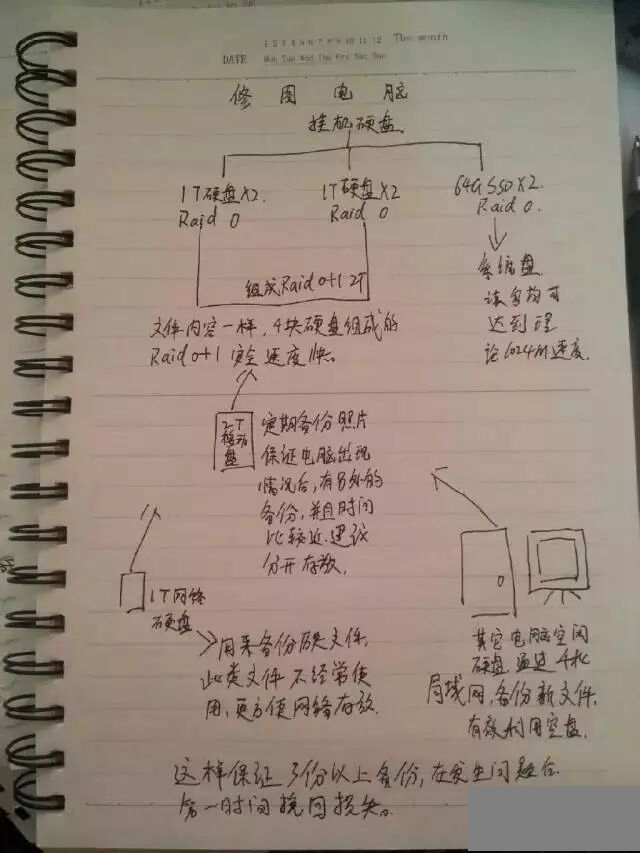 1 2 3 4 5 6 7 8 9 10 11 12 The month
DATE Mon Tue Wed Thu Fri Sat Sun
修图电脑
挂机硬盘
1T硬盘X2
Raid 0
1T硬盘X2
Raid 0
64G SSD X2
Raid 0.
组成Raid 0+1 2T
系统盘
读写均可
达到理
论1024M速度.
文件内容一样,4块硬盘组成的
Raid 0+1 安全速度快。
2T
移动
盘
定期备份照片
保证电脑出现
情况后,有另外的
备份,并且时间
比较近.建议
分开存放.
1T网络
硬盘
用来备份历史文件.
此类文件不经常使
用,更方便网络存放.
其它电脑空闲
硬盘通过千兆
局域网,备份新文件.
有效利用空盘.
这样保证3份以上备份,在发生问题后
第一时间挽回损失。